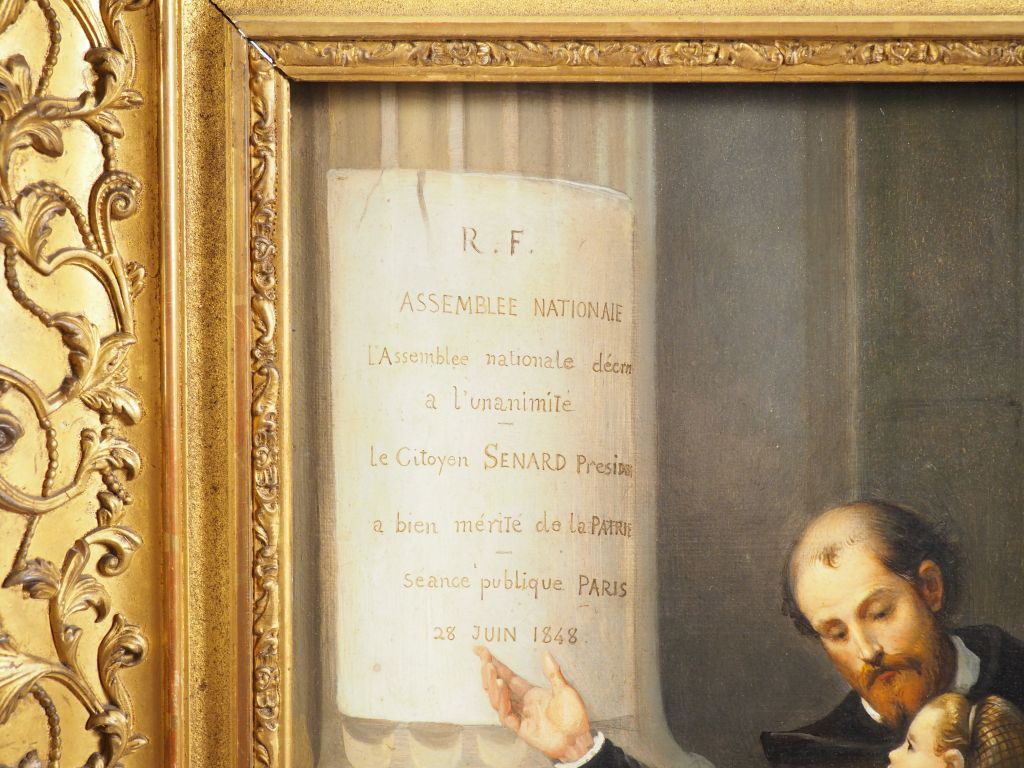 R. F.
ASSEMBLEE NATIONALE
L'Assemblee nationale décrn
a l'unanimité
le Citoyen SENARD Presidnt
a bien mérité de la PATRIE
séance publique PARIS
28 JUIN 1848.